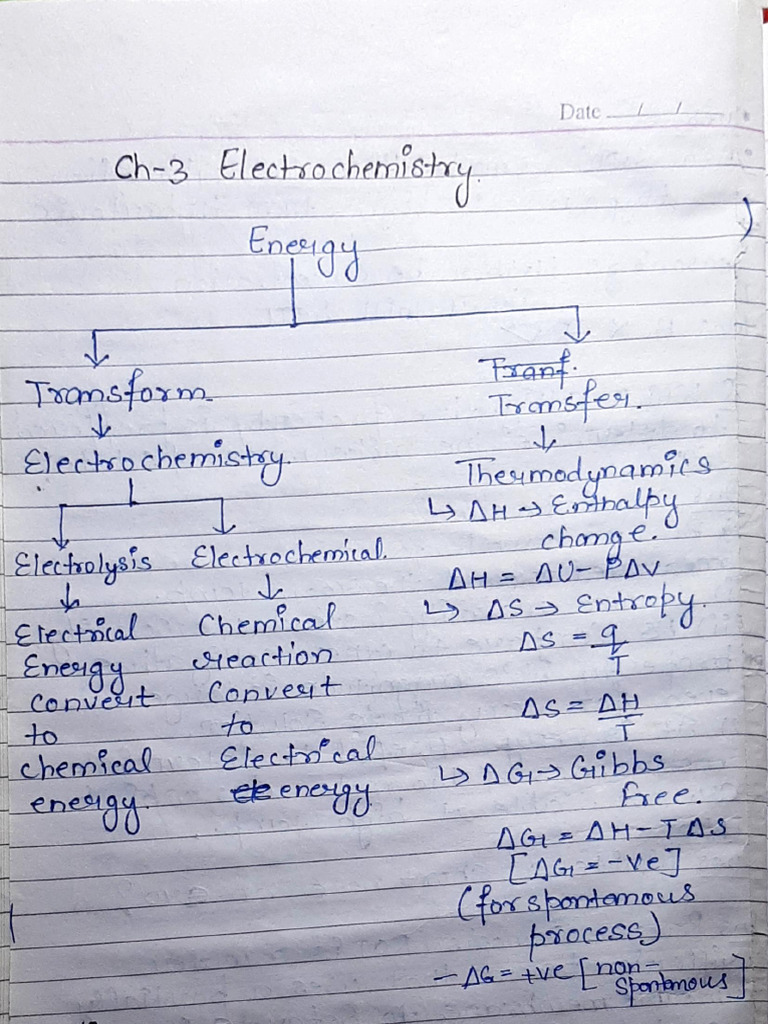 Date / /
Ch-3 Electrochemistry.
Energy
Transform
Electrochemistry.
Electrolysis
Electrical
Energy
convert
to
chemical
energy.
Electrochemical.
Chemical
reaction
Convert
to
Electrical
energy
Tranf.
Transfer.
Thermodynamics
↳ ΔH → Enthalpy
change.
ΔH = ΔU - PΔV
↳ ΔS → Entropy.
ΔS = q/T
ΔS = ΔH/T
↳ ΔG → Gibbs
free.
ΔG = ΔH - TΔS
[ΔG = -ve]
(for spontamous
process)
- ΔG = +ve [non-
spontamous]